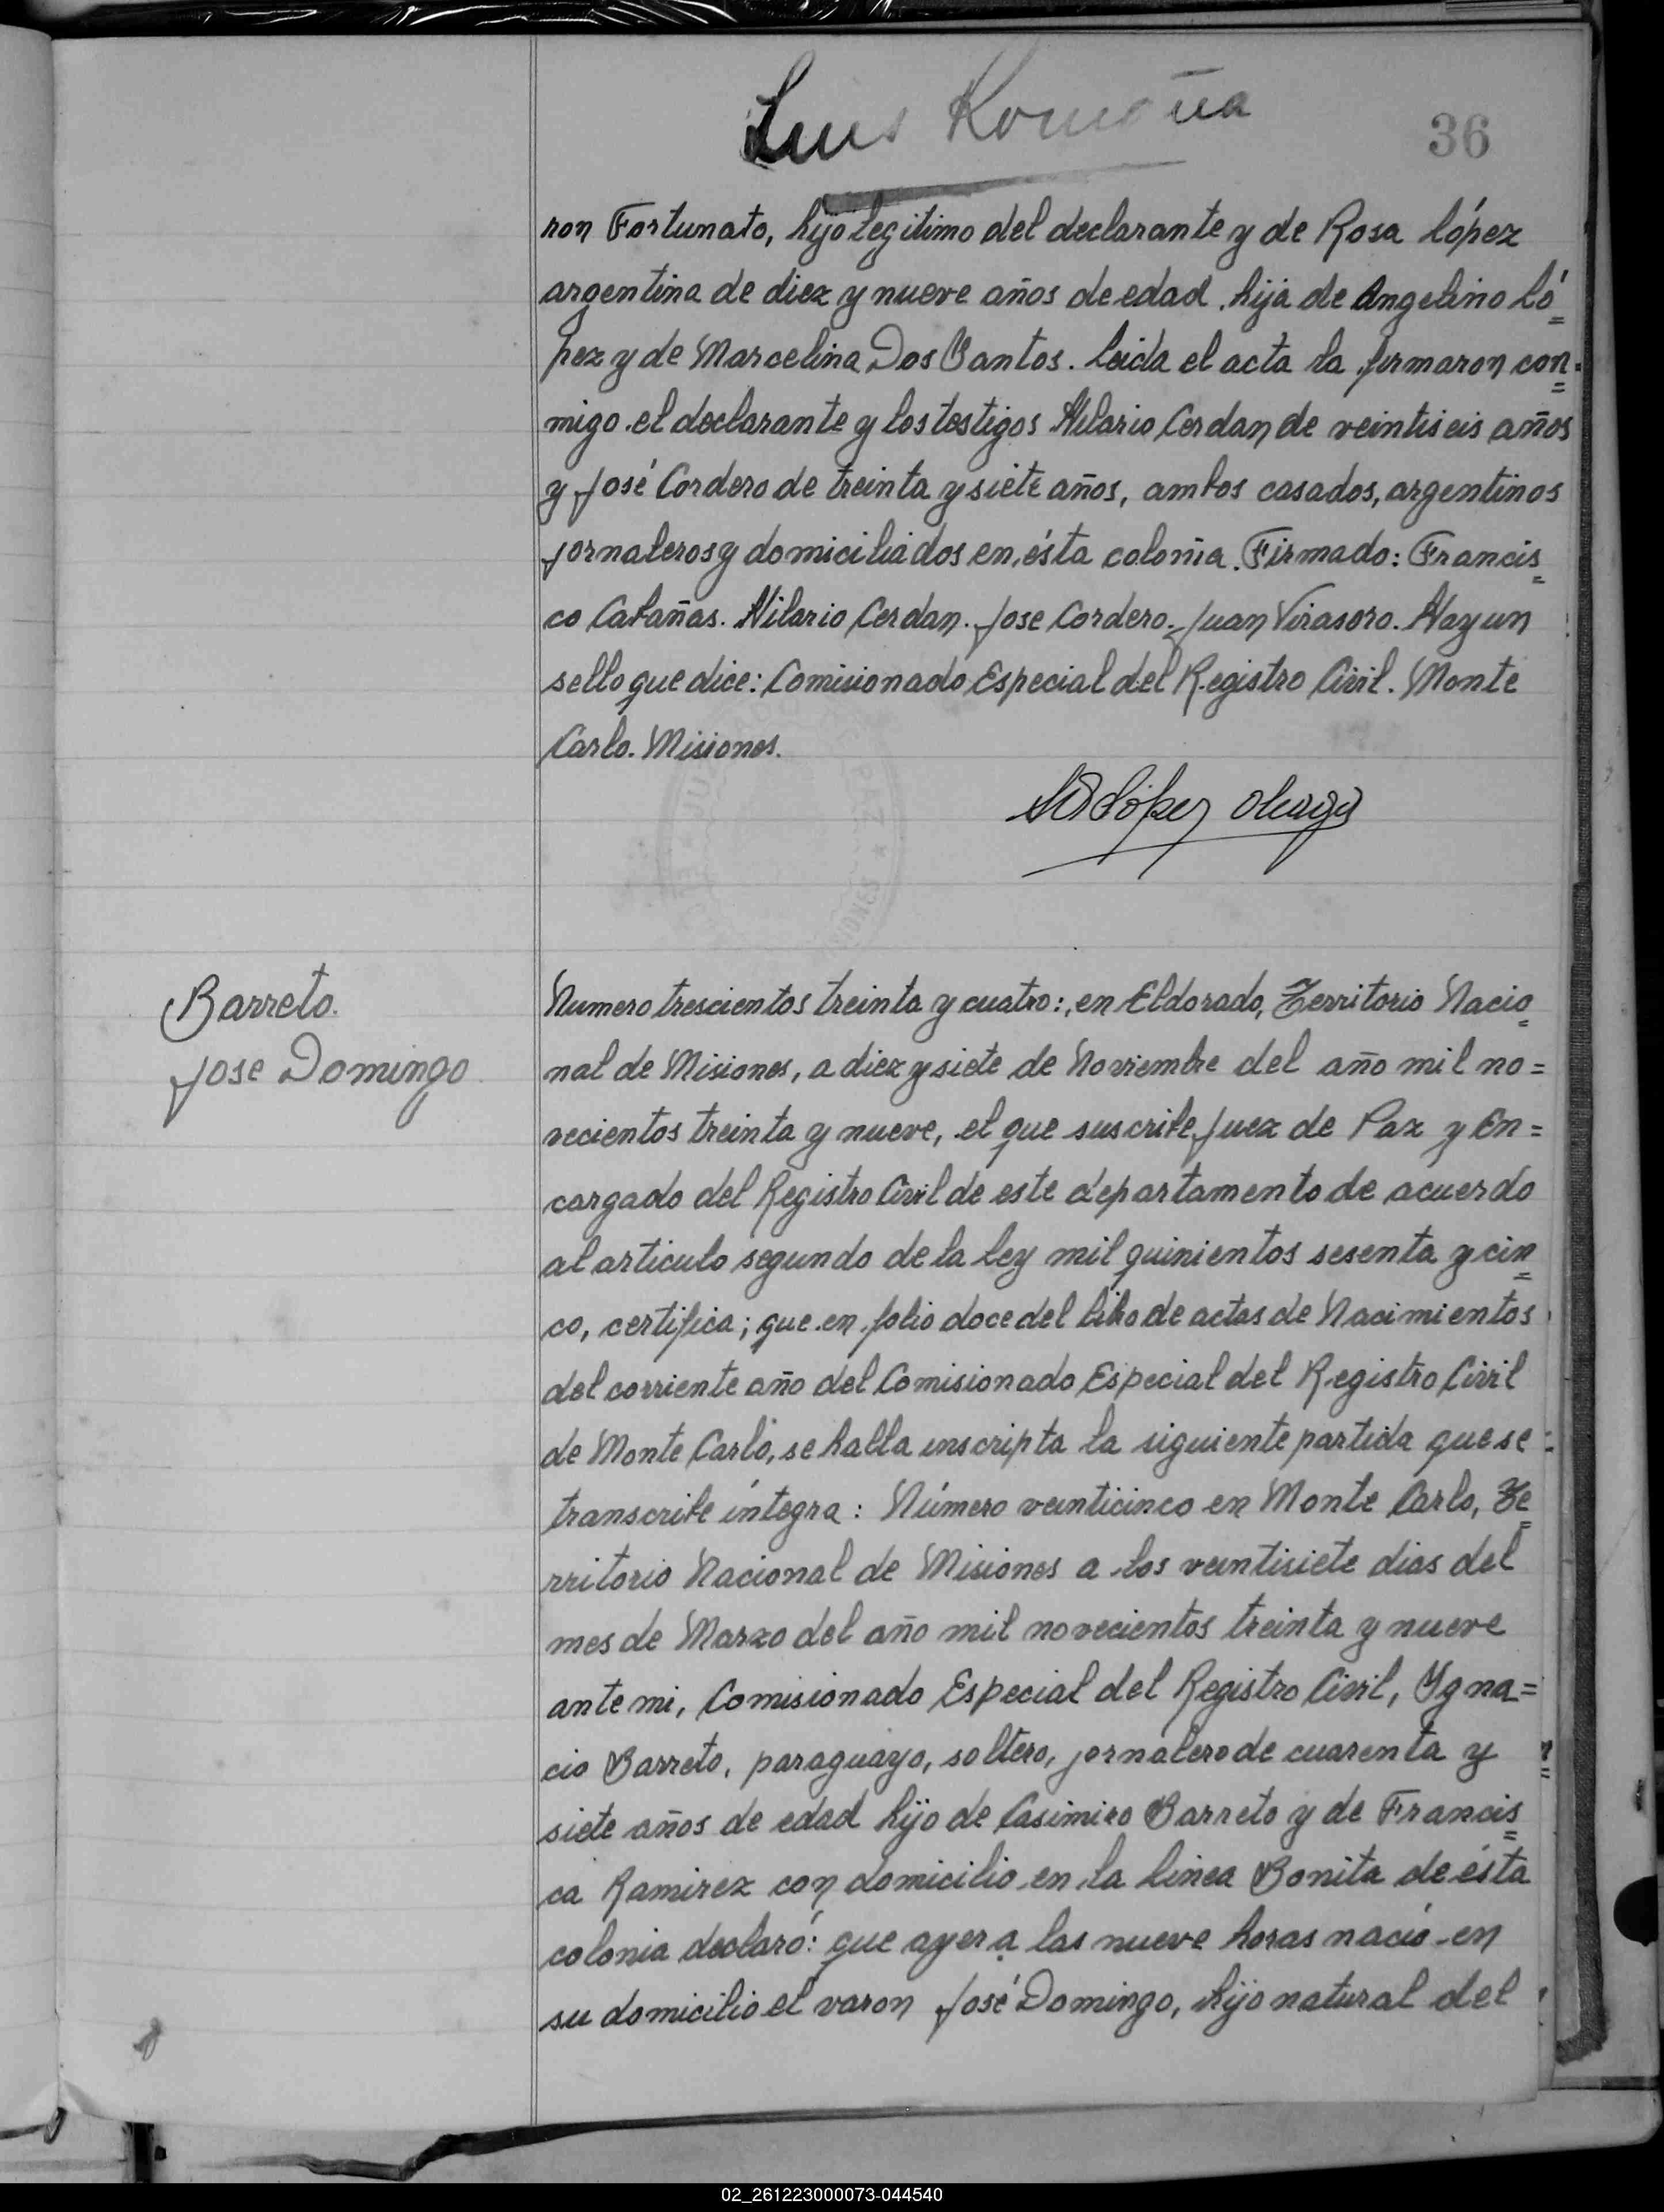 Luis
36
ron Fortunato, hijo legitimo del declarante y de Rosa López
argentina de diez y nueve años de edad, hija de Angelino Ló=
pez y de Marcelina Dos Santos. Leida el acta la firmaron con=
migo el declarante y los testigos Hilario Cerdan de veintiseis años
y José Cordero de treinta y siete años, ambos casados, argentinos
jornaleros y domiciliados en ésta colonia. Firmado: Francis=
co Cabañas. Hilario Cerdan. Jose Cordero. Juan Virasoro. Hay un
sello que dice: Comisionado Especial del Registro Civil. Monte
Carlo. Misiones.
López
Barreto.
Jose Domingo
Numero trescientos treinta y cuatro:, en Eldorado, Territorio Nacio=
nal de Misiones, a diez y siete de Noviembre del año mil no=
vecientos treinta y nueve, el que suscribe Juez de Paz y En=
cargado del Registro Civil de este departamento de acuerdo
al articulo segundo de la Ley mil quinientos sesenta y cin=
co, certifica; que en folio doce del libro de actas de Nacimientos
del corriente año del Comisionado Especial del Registro Civil
de Monte Carlo, se halla inscripta la siguiente partida que se
transcribe íntegra: Número veinticinco en Monte Carlo, Te=
rritorio Nacional de Misiones a los veintisiete dias del
mes de Marzo del año mil novecientos treinta y nueve
ante mi, Comisionado Especial del Registro Civil, Ygna=
cio Barreto, paraguayo, soltero, jornalero de cuarenta y
siete años de edad hijo de Casimiro Barreto y de Francis=
ca Ramirez con domicilio en la linea Bonita de ésta
colonia declaró: que ayer a las nueve horas nació en
su domicilio el varon José Domingo, hijo natural del
02_261223000073-044540